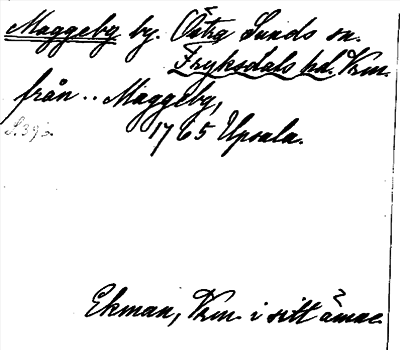 Maggeby by. Östra Sunds sn.
Fryksdals hd. Vrm.
från .. Maggeby,
S. 393.
1765 Upsala.
Ekman, Vrm. i sitt ämne